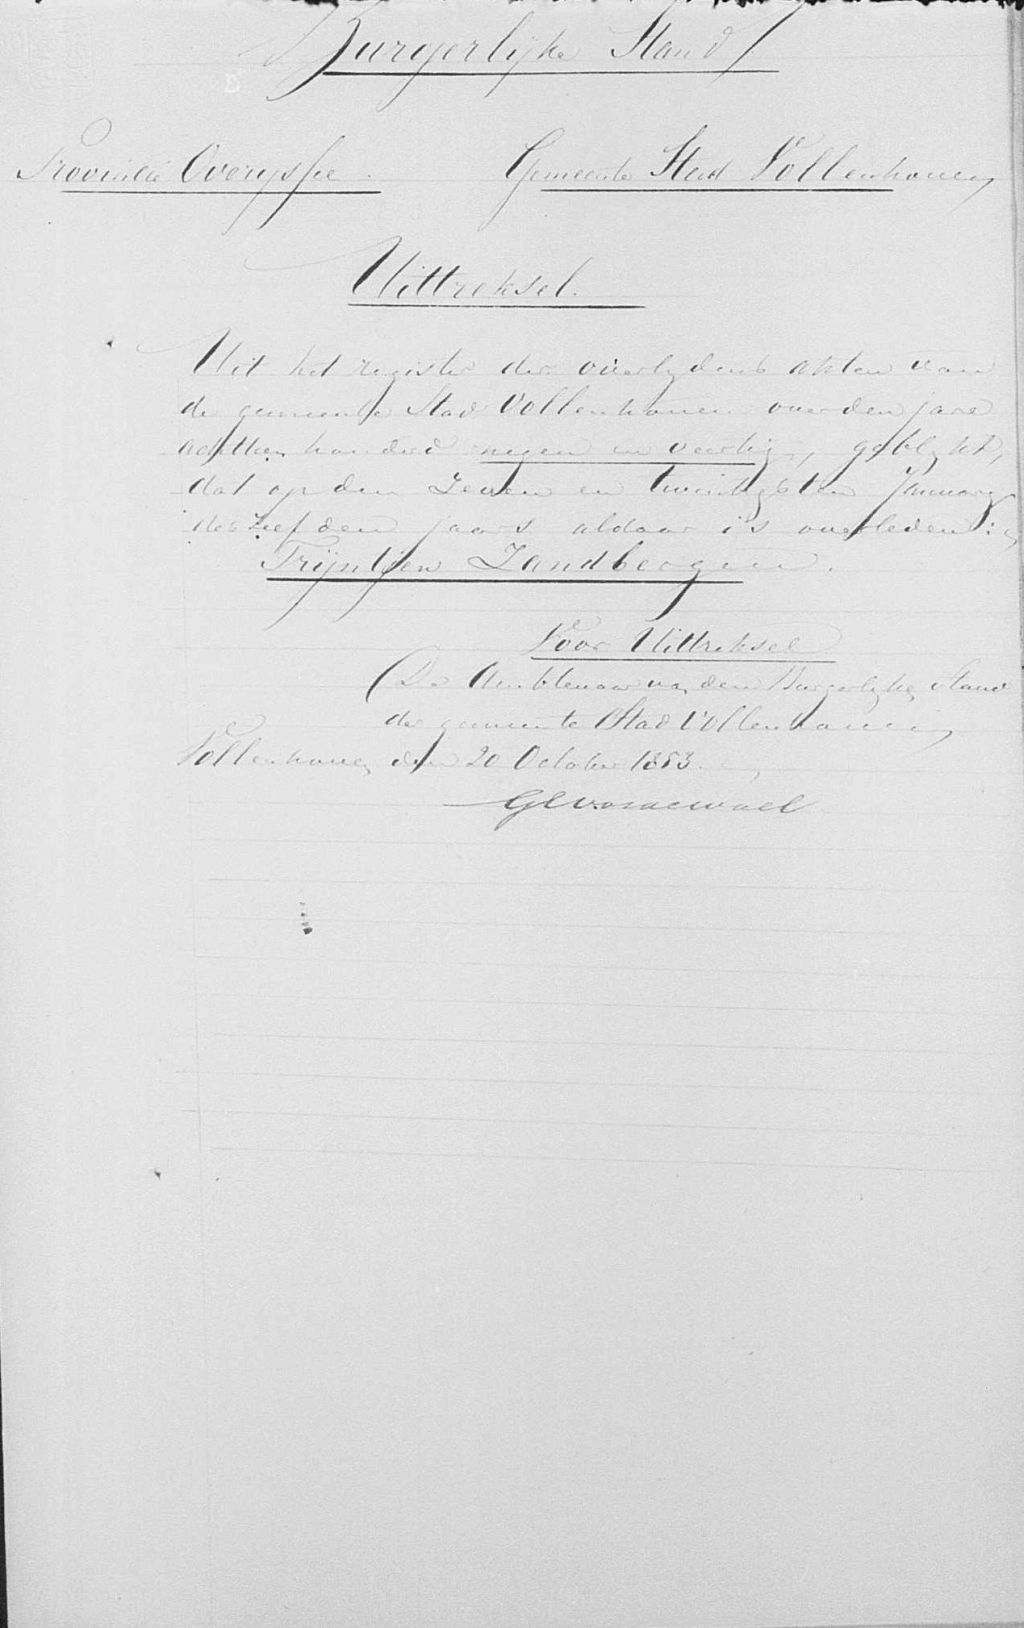 Burgerlijke Stand
Provincie Overijssel. Gemeente Stad Vollenhove,
Uittreksel.
Uit het register der overlydens akten van
de gemeente Stad Vollenhove over den jare
achttien honderd negen en veertig, geblykt,
dat op den Zeven en twintigsten January
deszelfden jaars aldaar is overleden:
Trijntjen Zandbergen.
Voor Uittreksel
De Ambtenaar van den Burgerlyke Stand
der gemeente Stad Vollenhove,
Vollenhove, den 20 October 1883.